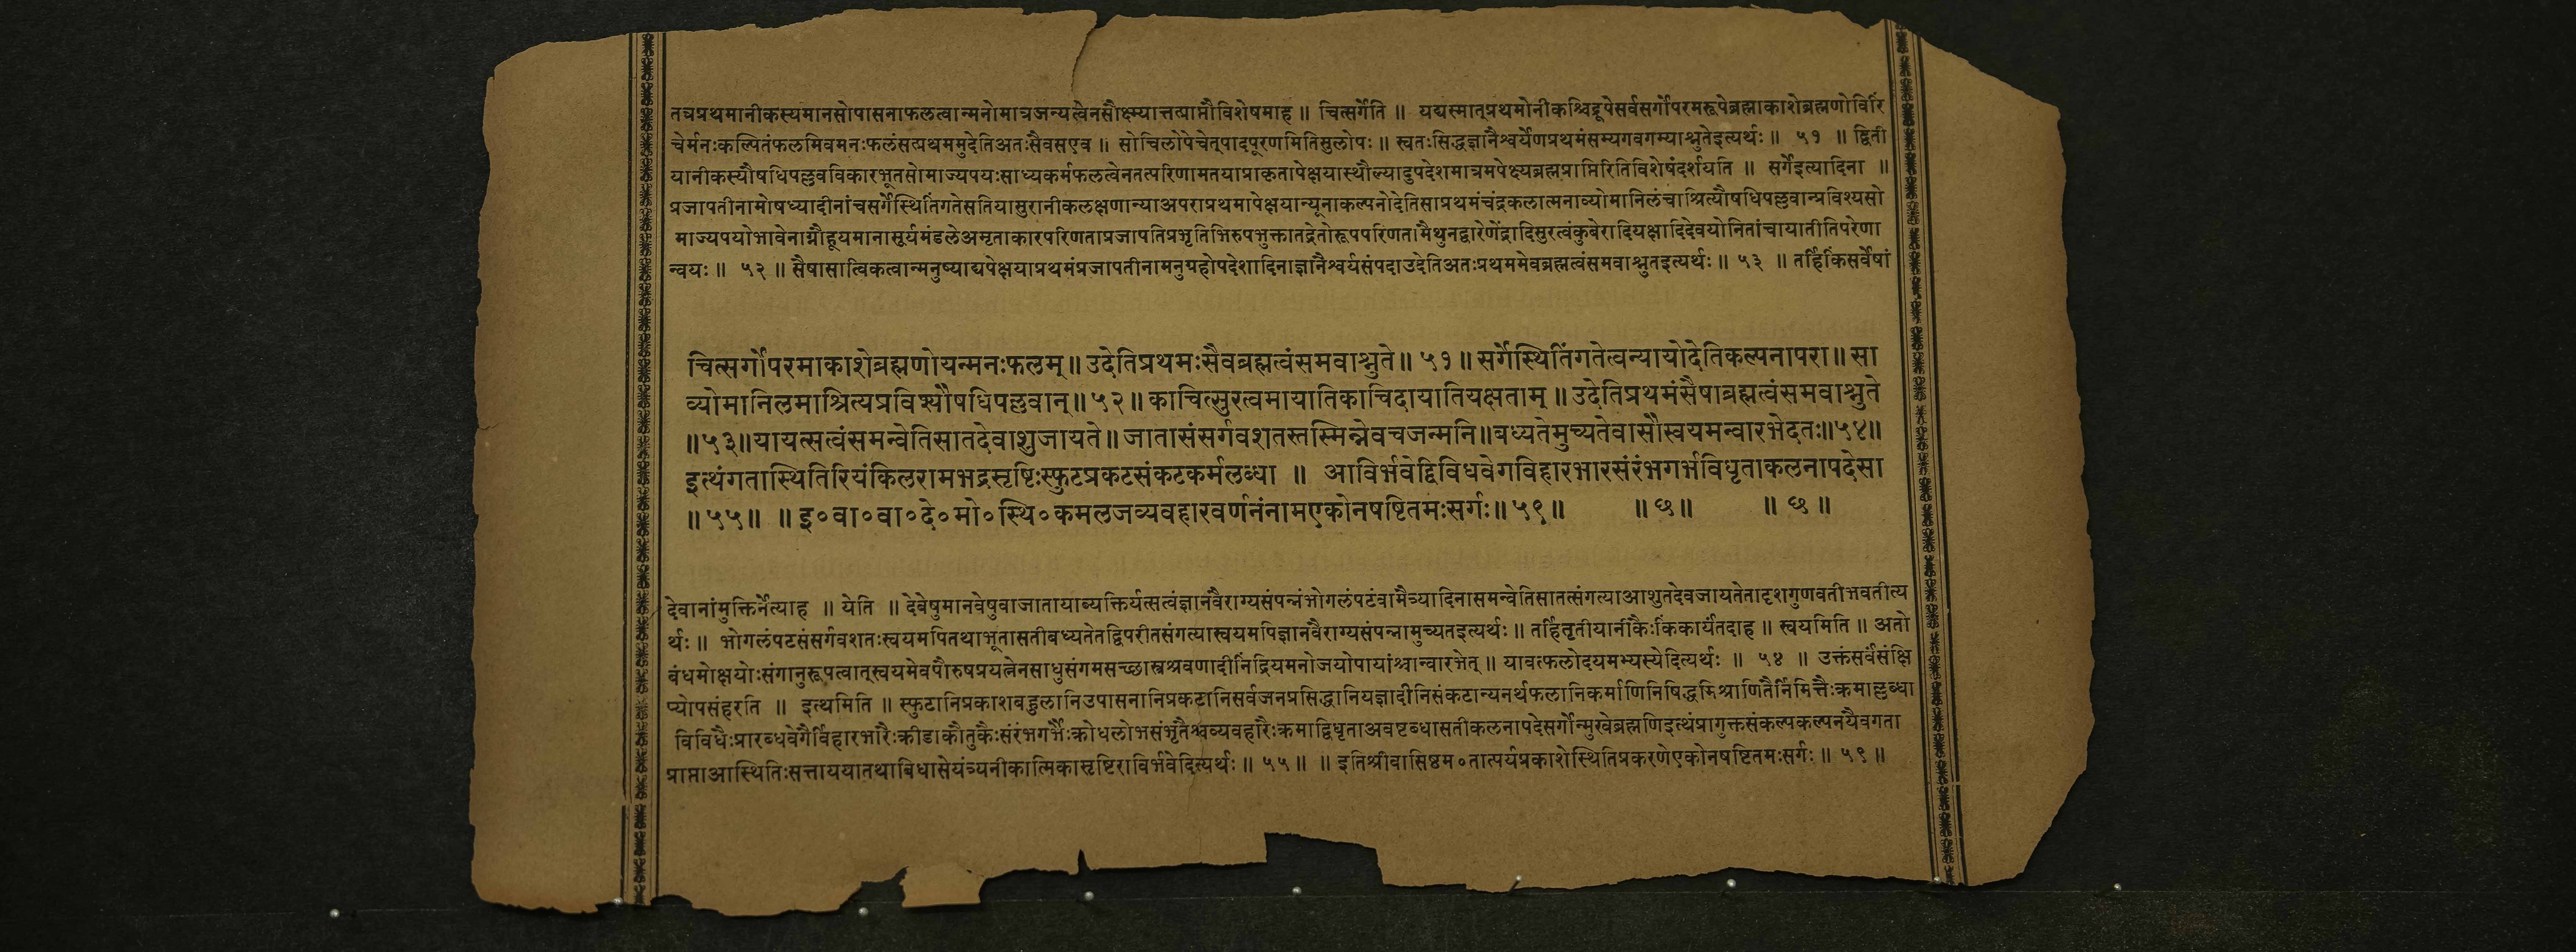 तत्रप्रथमानीकस्यमानसोपासनाफलत्वान्मनोमात्रजन्यत्वेनसौक्ष्म्यात्तत्प्राप्तौविशेषमाह ॥ चित्सर्गेति ॥ यद्यस्मात्प्रथमोनीकश्चिद्रूपेसर्वसर्गोपरमरूपेब्रह्माकाशेब्रह्मणोविरिं
चेर्मनःकल्पितंफलमिवमनःफलंसत्प्रथममुदेतिअतःसैवसएव ॥ सोचिलोपेचेत्पादपूरणमितिसुलोपः ॥ स्वतःसिद्धज्ञानैश्वर्येणप्रथमंसम्यगवगम्याश्नुतेइत्यर्थः ॥ ५१ ॥ द्विती
यानीकस्यौषधिपल्लवविकारभूतसोमाज्यपयःसाध्यकर्मफलत्वेनतत्परिणामतयाप्राकृतापेक्षयास्थौल्यादुपदेशमात्रमपेक्ष्यब्रह्मप्राप्तिरितिविशेषंदर्शयति ॥ सर्गेइत्यादिना ॥
प्रजापतीनामोषध्यादीनांचसर्गेस्थितिंगतेसतियासुरानीकलक्षणान्याअपराप्रथमापेक्षयान्यूनाकल्पनोदेतिसाप्रथमंचंद्रकलात्मनाव्योमानिलंचाश्रित्यौषधिपल्लवान्प्रविश्यसो
माज्यपयोभावेनाग्नौहूयमानासूर्यमंडलेअमृताकारपरिणताप्रजापतिप्रभृतिभिरुपभुक्तातद्रेतोरूपपरिणतामैथुनद्वारेणेंद्रादिसुरत्वंकुबेरादियक्षादिदेवयोनितांचायातीतिपरेणा
न्वयः ॥ ५२ ॥ सैषासात्विकत्वान्मनुष्याद्यपेक्षयाप्रथमंप्रजापतीनामनुग्रहोपदेशादिनाज्ञानैश्वर्यसंपदाउदेतिअतःप्रथममेवब्रह्मत्वंसमवाश्नुतइत्यर्थः ॥ ५३ ॥ तर्हिकिंसर्वेषां
चित्सर्गोपरमाकाशेब्रह्मणोयन्मनःफलम् ॥ उदेतिप्रथमःसैवब्रह्मत्वंसमवाश्नुते ॥ ५१ ॥ सर्गेस्थितिंगतेत्वन्यायोदेतिकल्पनापरा ॥ सा
व्योमानिलमाश्रित्यप्रविश्यौषधिपल्लवान् ॥ ५२ ॥ काचित्सुरत्वमायातिकाचिदायातियक्षताम् ॥ उदेतिप्रथमंसैषाब्रह्मत्वंसमवाश्नुते
॥ ५३ ॥ यायत्सत्वंसमन्वेतिसातदेवाशुजायते ॥ जातासंसर्गवशतस्तस्मिन्नेवचजन्मनि ॥ बध्यतेमुच्यतेवासौस्वयमन्वारभेदतः ॥ ५४ ॥
इत्थंगतास्थितिरियंकिलरामभद्रसृष्टिःस्फुटप्रकटसंकटकर्मलब्धा ॥ आविर्भवेद्विविधवेगविहारभारसंरंभगर्भविधृताकलनापदेसा
॥ ५५ ॥ ॥ इ०वा०वा०दे०मो०स्थि०कमलजव्यवहारवर्णनंनामएकोनषष्टितमःसर्गः ॥ ५९ ॥ ॥ छ ॥ ॥ छ ॥
देवानांमुक्तिर्नेत्याह ॥ येति ॥ देवेषुमानवेषुवाजातायाव्यक्तिर्यत्सत्वंज्ञानंवैराग्यसंपन्नंभोगलंपटंवामैत्र्यादिनासमन्वेतिसातत्संगत्याआशुतदेवजायतेतादृशगुणवतीभवतीत्य
र्थः ॥ भोगलंपटसंसर्गवशतःस्वयमपितथाभूतासतीबध्यतेतद्विपरीतसंगत्यास्वयमपिज्ञानवैराग्यसंपन्नामुच्यतइत्यर्थः ॥ तर्हितृतीयानीकैःकिंकार्यंतदाह ॥ स्वयमिति ॥ अतो
बंधमोक्षयोःसंगानुरूपत्वात्स्वयमेवपौरुषप्रयत्नेनसाधुसंगमसच्छास्त्रश्रवणादीनिंद्रियमनोजयोपायांश्चान्वारभेत् ॥ यावत्फलोदयमभ्यस्येदित्यर्थः ॥ ५४ ॥ उक्तंसर्वंसंक्षि
प्योपसंहरति ॥ इत्थमिति ॥ स्फुटानिप्रकाशबहुलानिउपासनानिप्रकटानिसर्वजनप्रसिद्धानियज्ञादीनिसंकटान्यनर्थफलानिकर्माणिनिषिद्धमिश्राणितैर्निमित्तैःक्रमाल्लब्धा
विविधैःप्रारब्धवेगैर्विहारभारैःक्रीडाकौतुकैःसंरंभगर्भैःक्रोधलोभसंभृतैश्चव्यवहारैःक्रमाद्विधृताअवष्टब्धासतीकलनापदेसर्गोन्मुखेब्रह्मणिइत्थंप्रागुक्तसंकल्पकल्पनयैवगता
प्राप्ताआस्थितिःसत्ताययातथाविधासेयंत्र्यनीकात्मिकासृष्टिराविर्भवेदित्यर्थः ॥ ५५ ॥ ॥ इतिश्रीवासिष्ठम०तात्पर्यप्रकाशेस्थितिप्रकरणेएकोनषष्टितमःसर्गः ॥ ५९ ॥